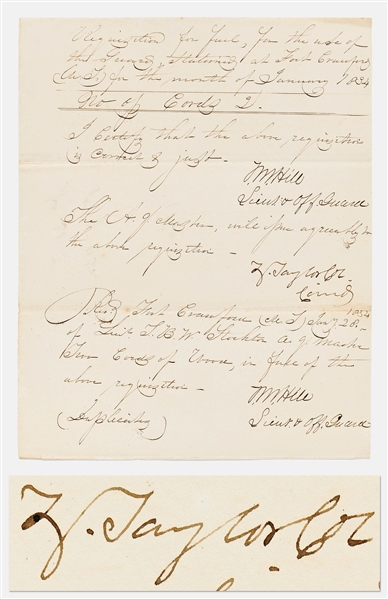 Requisition for fuel, for the use of
the Guard, Stationed at Fort Crawford
(M.T.) for the month of January 1834
No of Cords 2.
I Certify that the above requisition
is Correct & just -
Lieut & Off Guard
The A. Q. Master, will issue agreeably to
the above requisition -
Z. Taylor Col
Comdg
Recd Fort Crawford (M.T.) Jany 28 - 1834
of Lieut T. B. W. Stockton A. Q. Master
Two Cords of Wood, in full of the
above requisition -
(Duplicates)
Lieut & Off. Guard
Z. Taylor Col